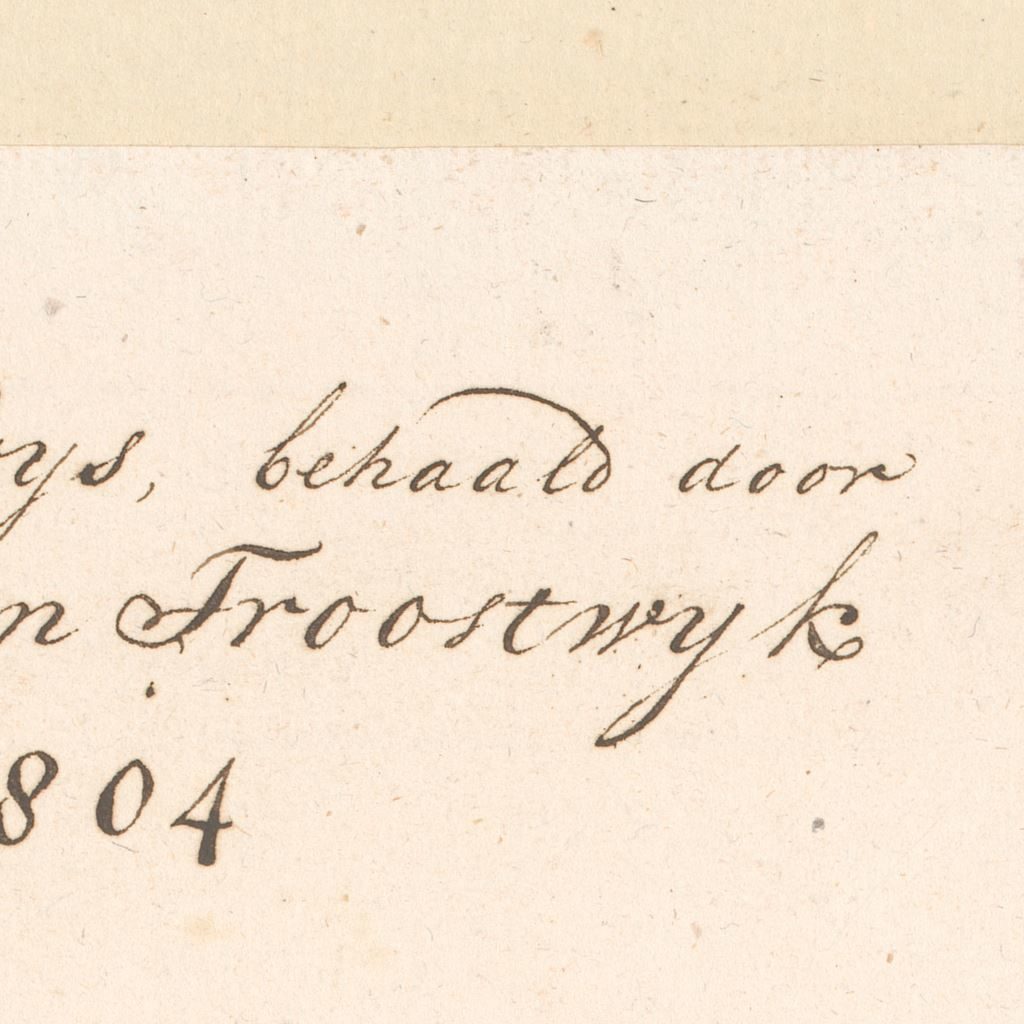 ys, behaald door
n Troostwyk
804